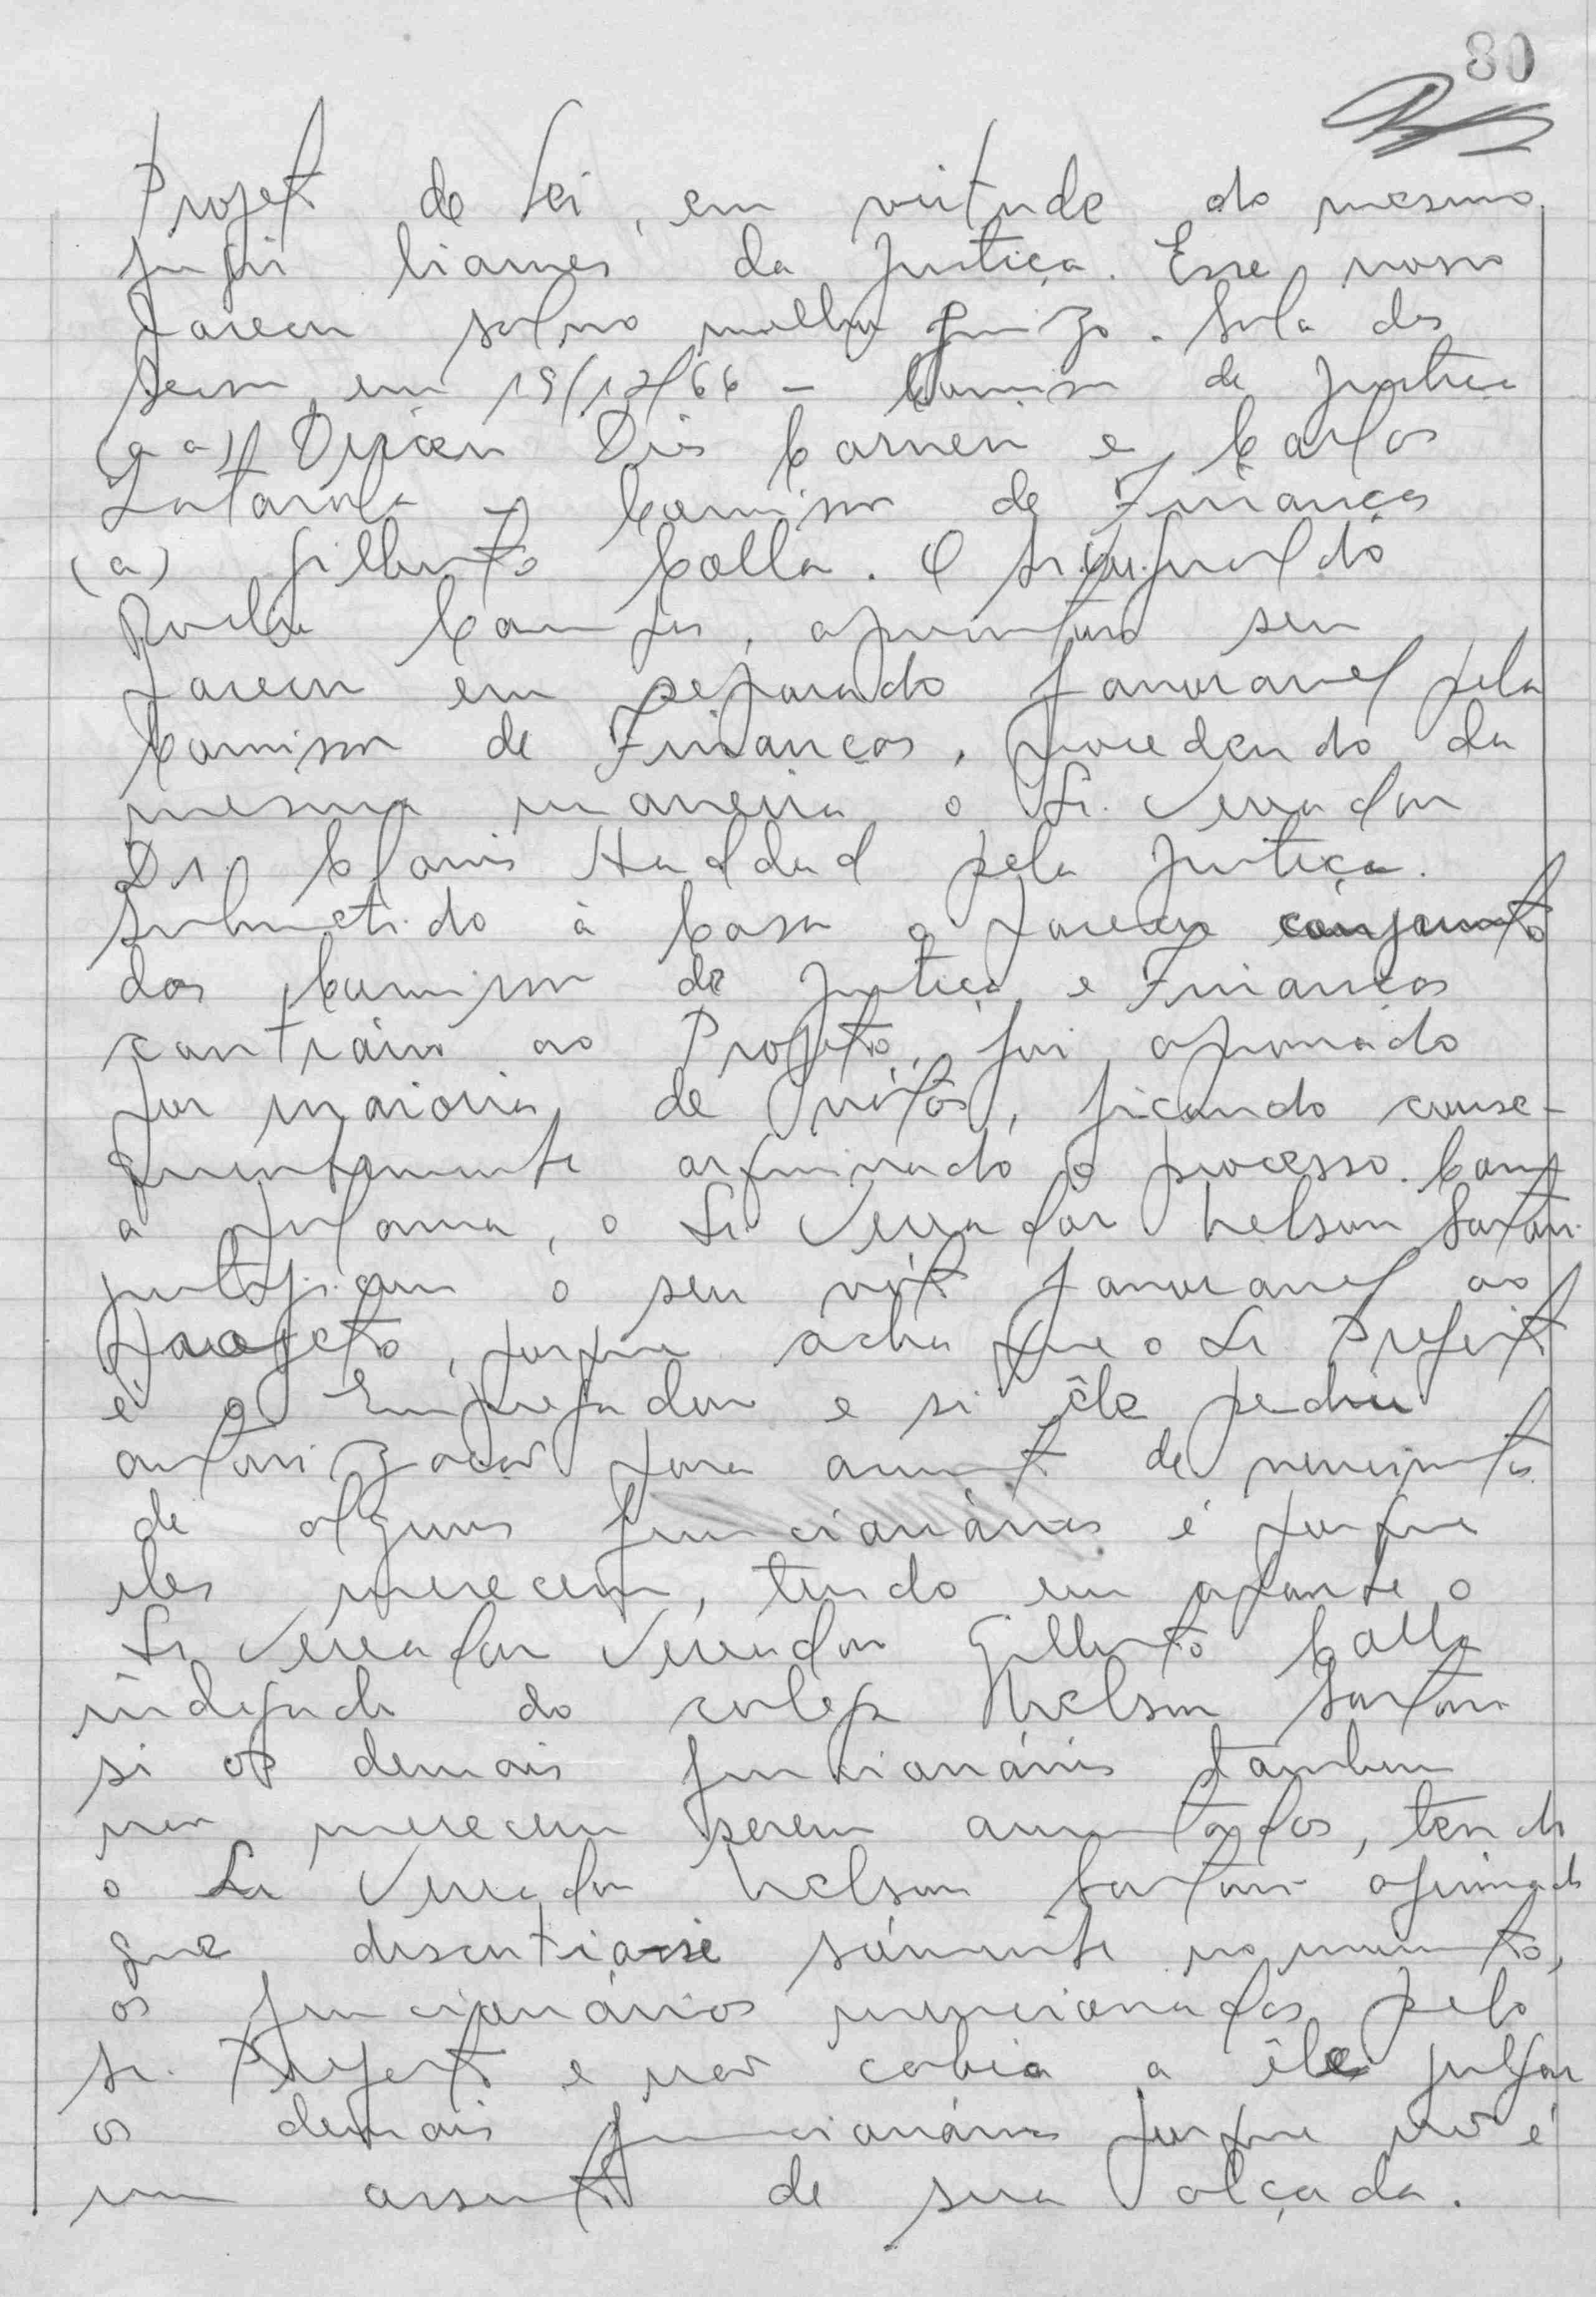 80
Projeto de Lei, em virtude do mesmo
fugir liames da Justiça. Esse nosso
parecer salvo melhor juizo. Sala das
Sessões, em 19/12/66 – Comissão de Justiça
(a a) Dirceu Dias Carneiro e Carlos
Comissão de Finanças
(a) Gilberto Colla. O Sr.
Rocha Campos, apresentou seu
parecer em separado favoravel pela
Comissão de Finanças, procedendo da
mesma maneira o Sr. Vereador
Dr. Clovis Haddad pela Justiça.
Submetido à Casa o parecer conjunto
das Comissões de Justiça e Finanças
contrário ao Projeto, foi aprovado
por maioria de vótos, ficando conse-
quentemente arquivado o processo. Com
a palavra, o Sr. Vereador Nelson Sartori
justificou o seu voto favoravel ao
projeto, porque acha que o Sr. Prefeito
é o Empregador e si êle pediu
autorização para aumento de vencimentos
de alguns funcionários é porque
eles merecem, tendo em aparte o
Sr. Vereador Vereador Gilberto Colla
indagado do colega Nelson Sartori
si os demais funcionários tambem
não merecem serem aumentados, tendo
o Sr. Vereador Nelson Sartori afirmado
que discutia-se sómente no momento,
os funcionários mencionados pelo
Sr. Prefeito e não cabia a êle julgar
os demais funcionários porque não é
um assunto de sua alçada.